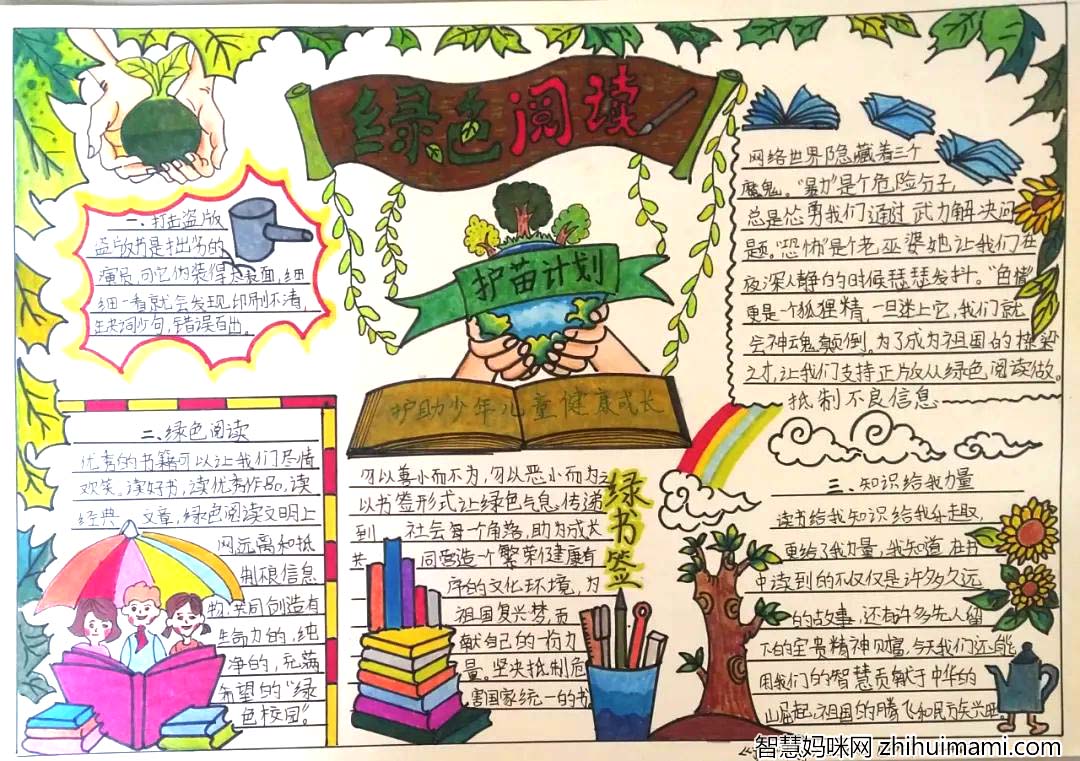 绿色阅读
护苗计划
护助少年儿童健康成长
一、打击盗版
盗版书是拙劣的
演员,可它伪装得表面,细
细一看就会发现,印刷不清,
缺词少句,错误百出。
二、绿色阅读
优秀的书籍可以让我们尽情
欢笑。读好书,读优秀作品,读
经典 文章,绿色阅读文明上
网远离和抵
制根信息
物,共同创造有
生命力的,纯
净的,充满
希望的“绿
色校园”。
勿以善小而不为,勿以恶小而为之
以书签形式让绿色气息,传递
到 社会每一个角落,助力成长
共 同营造一个繁荣健康有
序的文化环境,为
祖国复兴梦,而
献自己的一份力
量。坚决抵制危
害国家统一的书
绿书签
网络世界隐藏着三个
魔鬼。“暴力”是个危险分子,
总是怂勇我们通过武力解决问
题。“恐怖”是个老巫婆她让我们在
夜深人静的时候瑟瑟发抖。“色情”
更是一个狐狸精,一旦迷上它,我们就
会神魂颠倒。为了成为祖国的栋梁
之才,让我们支持正版从绿色阅读做。
抵制不良信息
三、知识给我力量
读书给我知识给我乐趣
更给了我力量,我知道,在书
中读到的不仅仅是许多久远
的故事,还有许多先人留
下的宝贵精神财富,今天我们还能
用我们的智慧贡献于中华的
崛起,祖国的腾飞和民族兴旺。
智慧妈咪网 zhihuimami.com